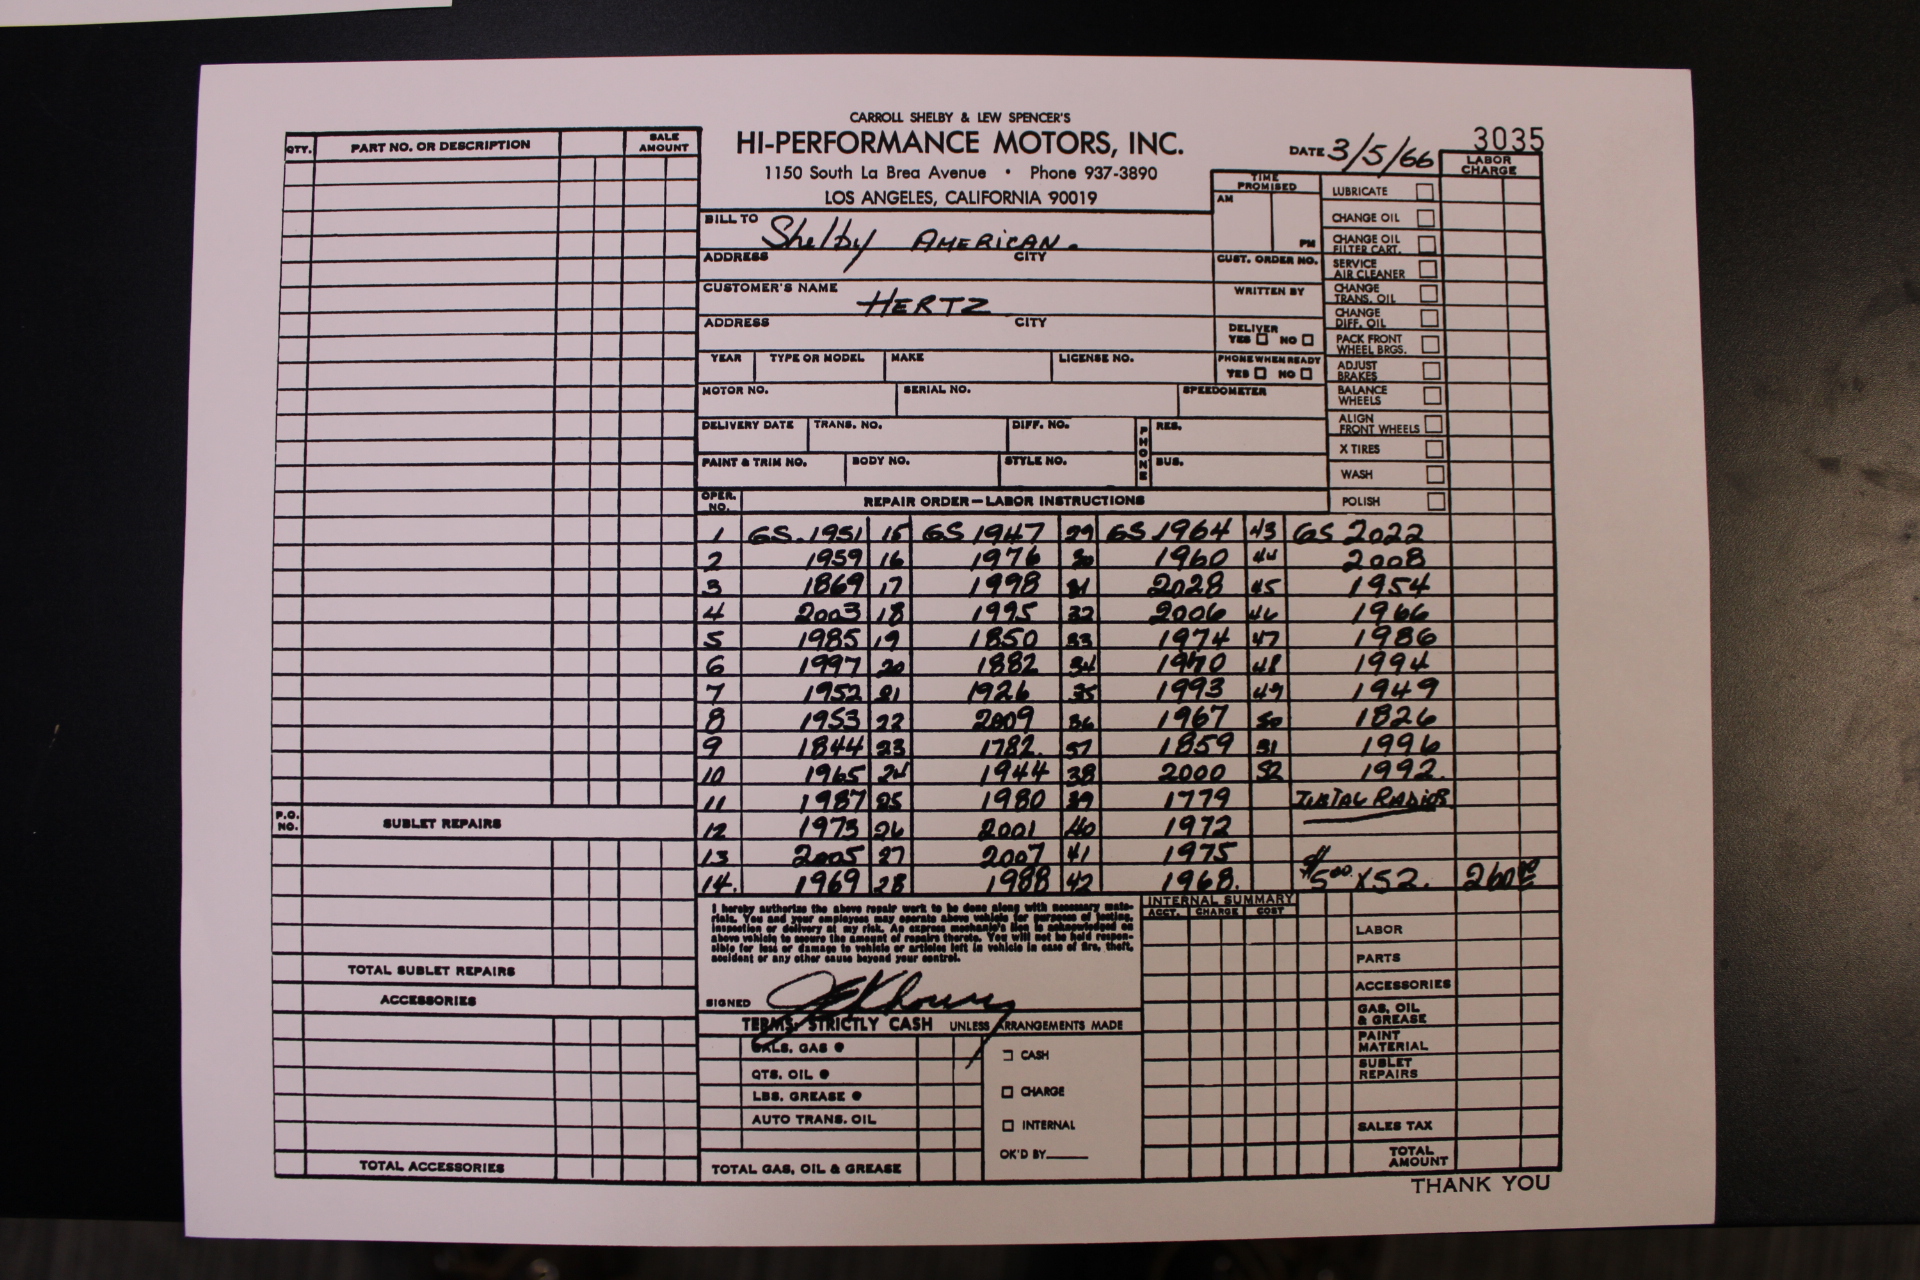 CARROLL SHELBY & LEW SPENCER'S
HI-PERFORMANCE MOTORS, INC.
1150 South La Brea Avenue • Phone 937-3890
LOS ANGELES, CALIFORNIA 90019
DATE 3/5/66
3035
QTY. PART NO. OR DESCRIPTION SALE AMOUNT
BILL TO Shelby AMERICAN.
ADDRESS CITY
CUSTOMER'S NAME HERTZ
ADDRESS CITY
YEAR TYPE OR MODEL MAKE LICENSE NO.
MOTOR NO. SERIAL NO. SPEEDOMETER
DELIVERY DATE TRANS. NO. DIFF. NO. PHONE RES.
PAINT & TRIM NO. BODY NO. STYLE NO. BUS.
TIME PROMISED
AM
PM
CUST. ORDER NO.
WRITTEN BY
DELIVER
YES NO
PHONE WHEN READY
YES NO
LABOR CHARGE
LUBRICATE
CHANGE OIL
CHANGE OIL FILTER CART.
SERVICE AIR CLEANER
CHANGE TRANS. OIL
CHANGE DIFF. OIL
PACK FRONT WHEEL BRGS.
ADJUST BRAKES
BALANCE WHEELS
ALIGN FRONT WHEELS
X TIRES
WASH
POLISH
OPER. NO. REPAIR ORDER—LABOR INSTRUCTIONS
1 GS.1951 15 GS 1947 29 GS 1964 43 GS 2022
2 1959 16 1976 30 1960 44 2008
3 1869 17 1998 31 2028 45 1954
4 2003 18 1995 32 2006 46 1966
5 1985 19 1850 33 1974 47 1986
6 1997 20 1882 34 1970 48 1994
7 1952 21 1926 35 1993 49 1949
8 1953 22 2009 36 1967 50 1826
9 1844 23 1782. 37 1859 51 1996
10 1965 24 1944 38 2000 52 1992.
11 1987 25 1980 39 1779 RADIOS
12 1973 26 2001 40 1972
13 2005 27 2007 41 1975
14. 1969 28 1988 42 1968. $5.00 X 52. 260.00
P.O. NO. SUBLET REPAIRS
TOTAL SUBLET REPAIRS
ACCESSORIES
TOTAL ACCESSORIES
I hereby authorize the above repair work to be done along with necessary mate-
rials. You and your employees may operate above vehicle for purposes of testing,
inspection or delivery at my risk. An express mechanic's lien is acknowledged on
above vehicle to secure the amount of repairs thereto. You will not be held respon-
sible for loss or damage to vehicle or articles left in vehicle in case of fire, theft,
accident or any other cause beyond your control.
SIGNED
TERMS: STRICTLY CASH UNLESS ARRANGEMENTS MADE
GALS. GAS @
QTS. OIL @
LBS. GREASE @
AUTO TRANS. OIL
TOTAL GAS, OIL & GREASE
CASH
CHARGE
INTERNAL
OK'D BY
INTERNAL SUMMARY
ACCT. CHARGE COST
LABOR
PARTS
ACCESSORIES
GAS, OIL & GREASE
PAINT MATERIAL
SUBLET REPAIRS
SALES TAX
TOTAL AMOUNT
THANK YOU